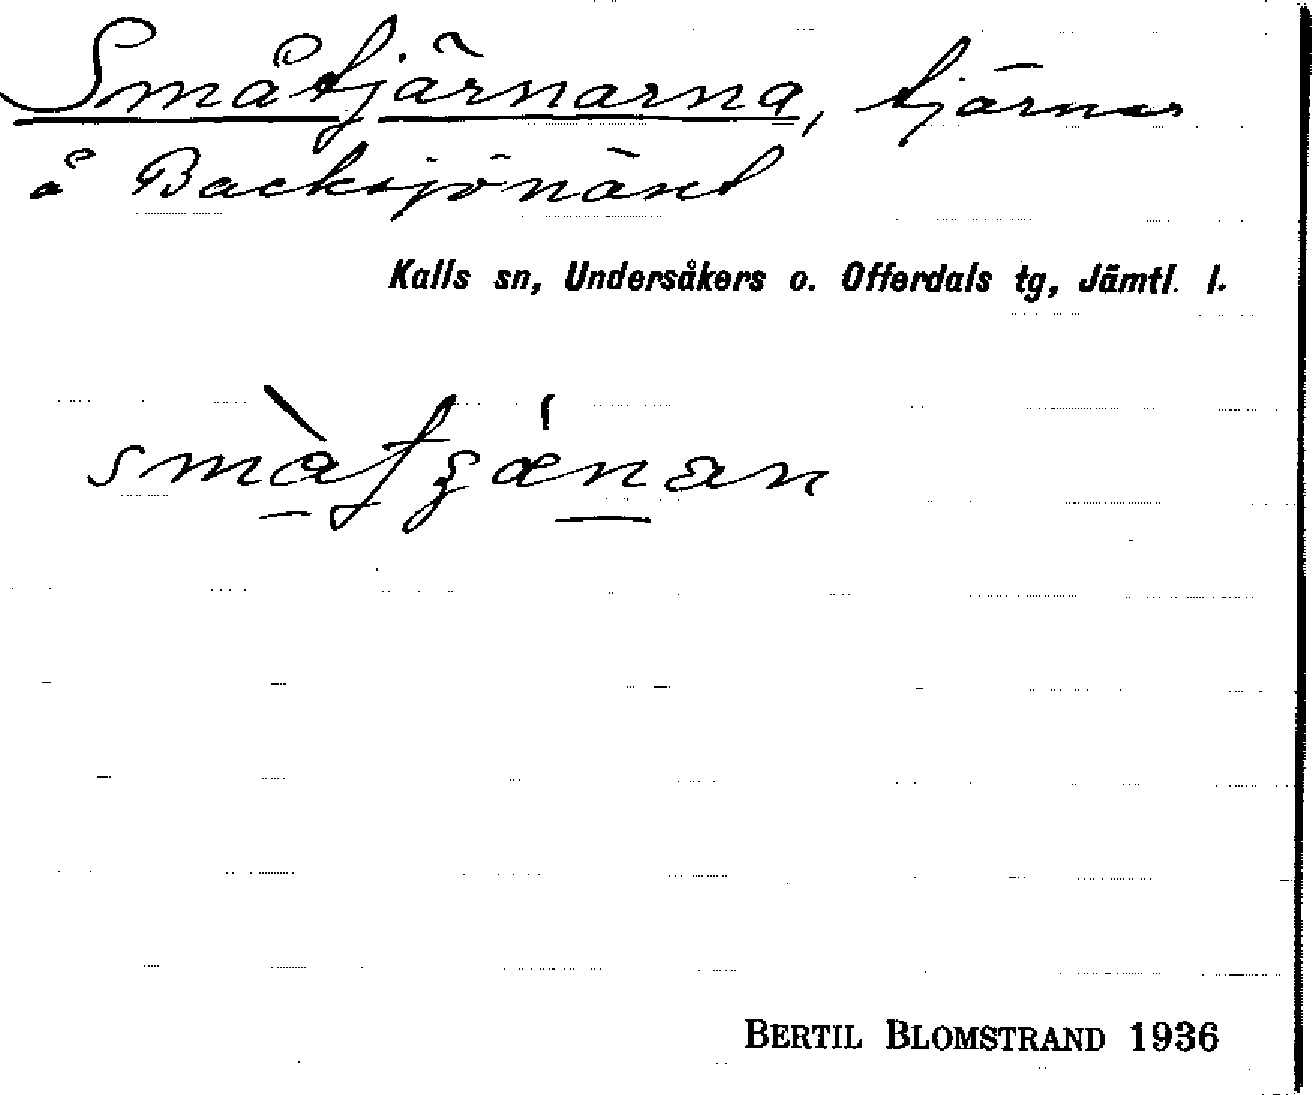 Småtjärnarna, tjärnar
å Backsjönäset
Kalls sn, Undersåkers o. Offerdals tg, Jämtl. l.
BERTIL BLOMSTRAND 1936